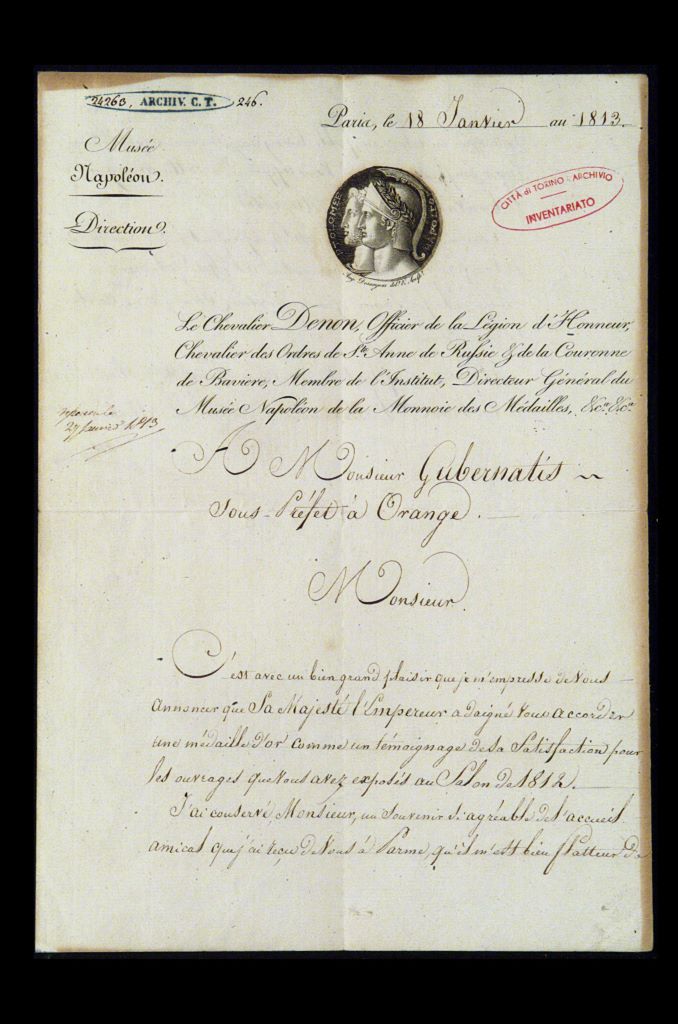 24263, ARCHIV. C. T. 246.
Paris, le 18 Janvier an 1813.
Musée
Napoléon.
Direction.
CITTÀ di TORINO - ARCHIVIO
INVENTARIATO
PTOLOMEE
NAPOLEON
Le Chevalier Denon, Officier de la Légion d'Honneur,
Chevalier des Ordres de Ste. Anne de Russie & de la Couronne
de Baviere, Membre de l'Institut, Directeur Général du
Musée Napoléon de la Monnoie des Médailles, &ca. &ca.
27 janvier 1813
A Monsieur Gubernatis
Sous-Préfet à Orange.
Monsieur
C'est avec un bien grand plaisir que je m'empresse de Vous
annoncer que Sa Majesté l'Empereur a daigné vous accorder
une médaille d'or comme un témoignage de sa Satisfaction pour
les ouvrages que vous avez exposés au Salon de 1812.
J'ai conservé, Monsieur, un souvenir si agréable de l'accueil
amical que j'ai reçu de Vous à Parme, qu'il m'est bien flatteur de